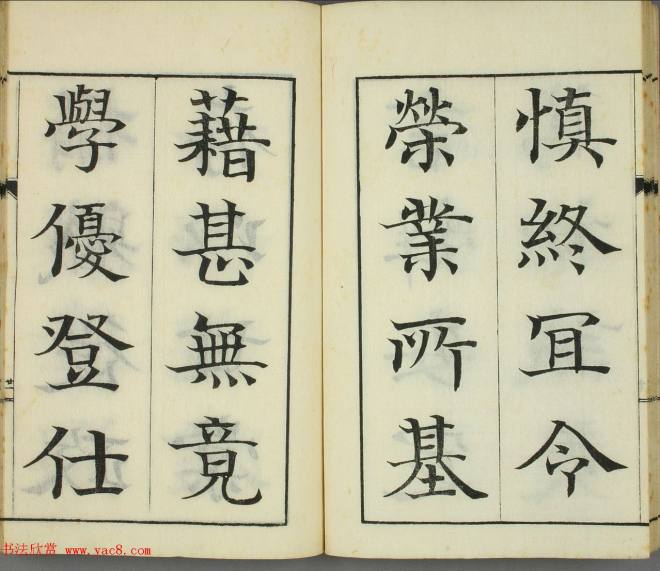 慎終冝令
榮業所基
藉甚無竟
學優登仕
书法欣赏 www.yac8.com